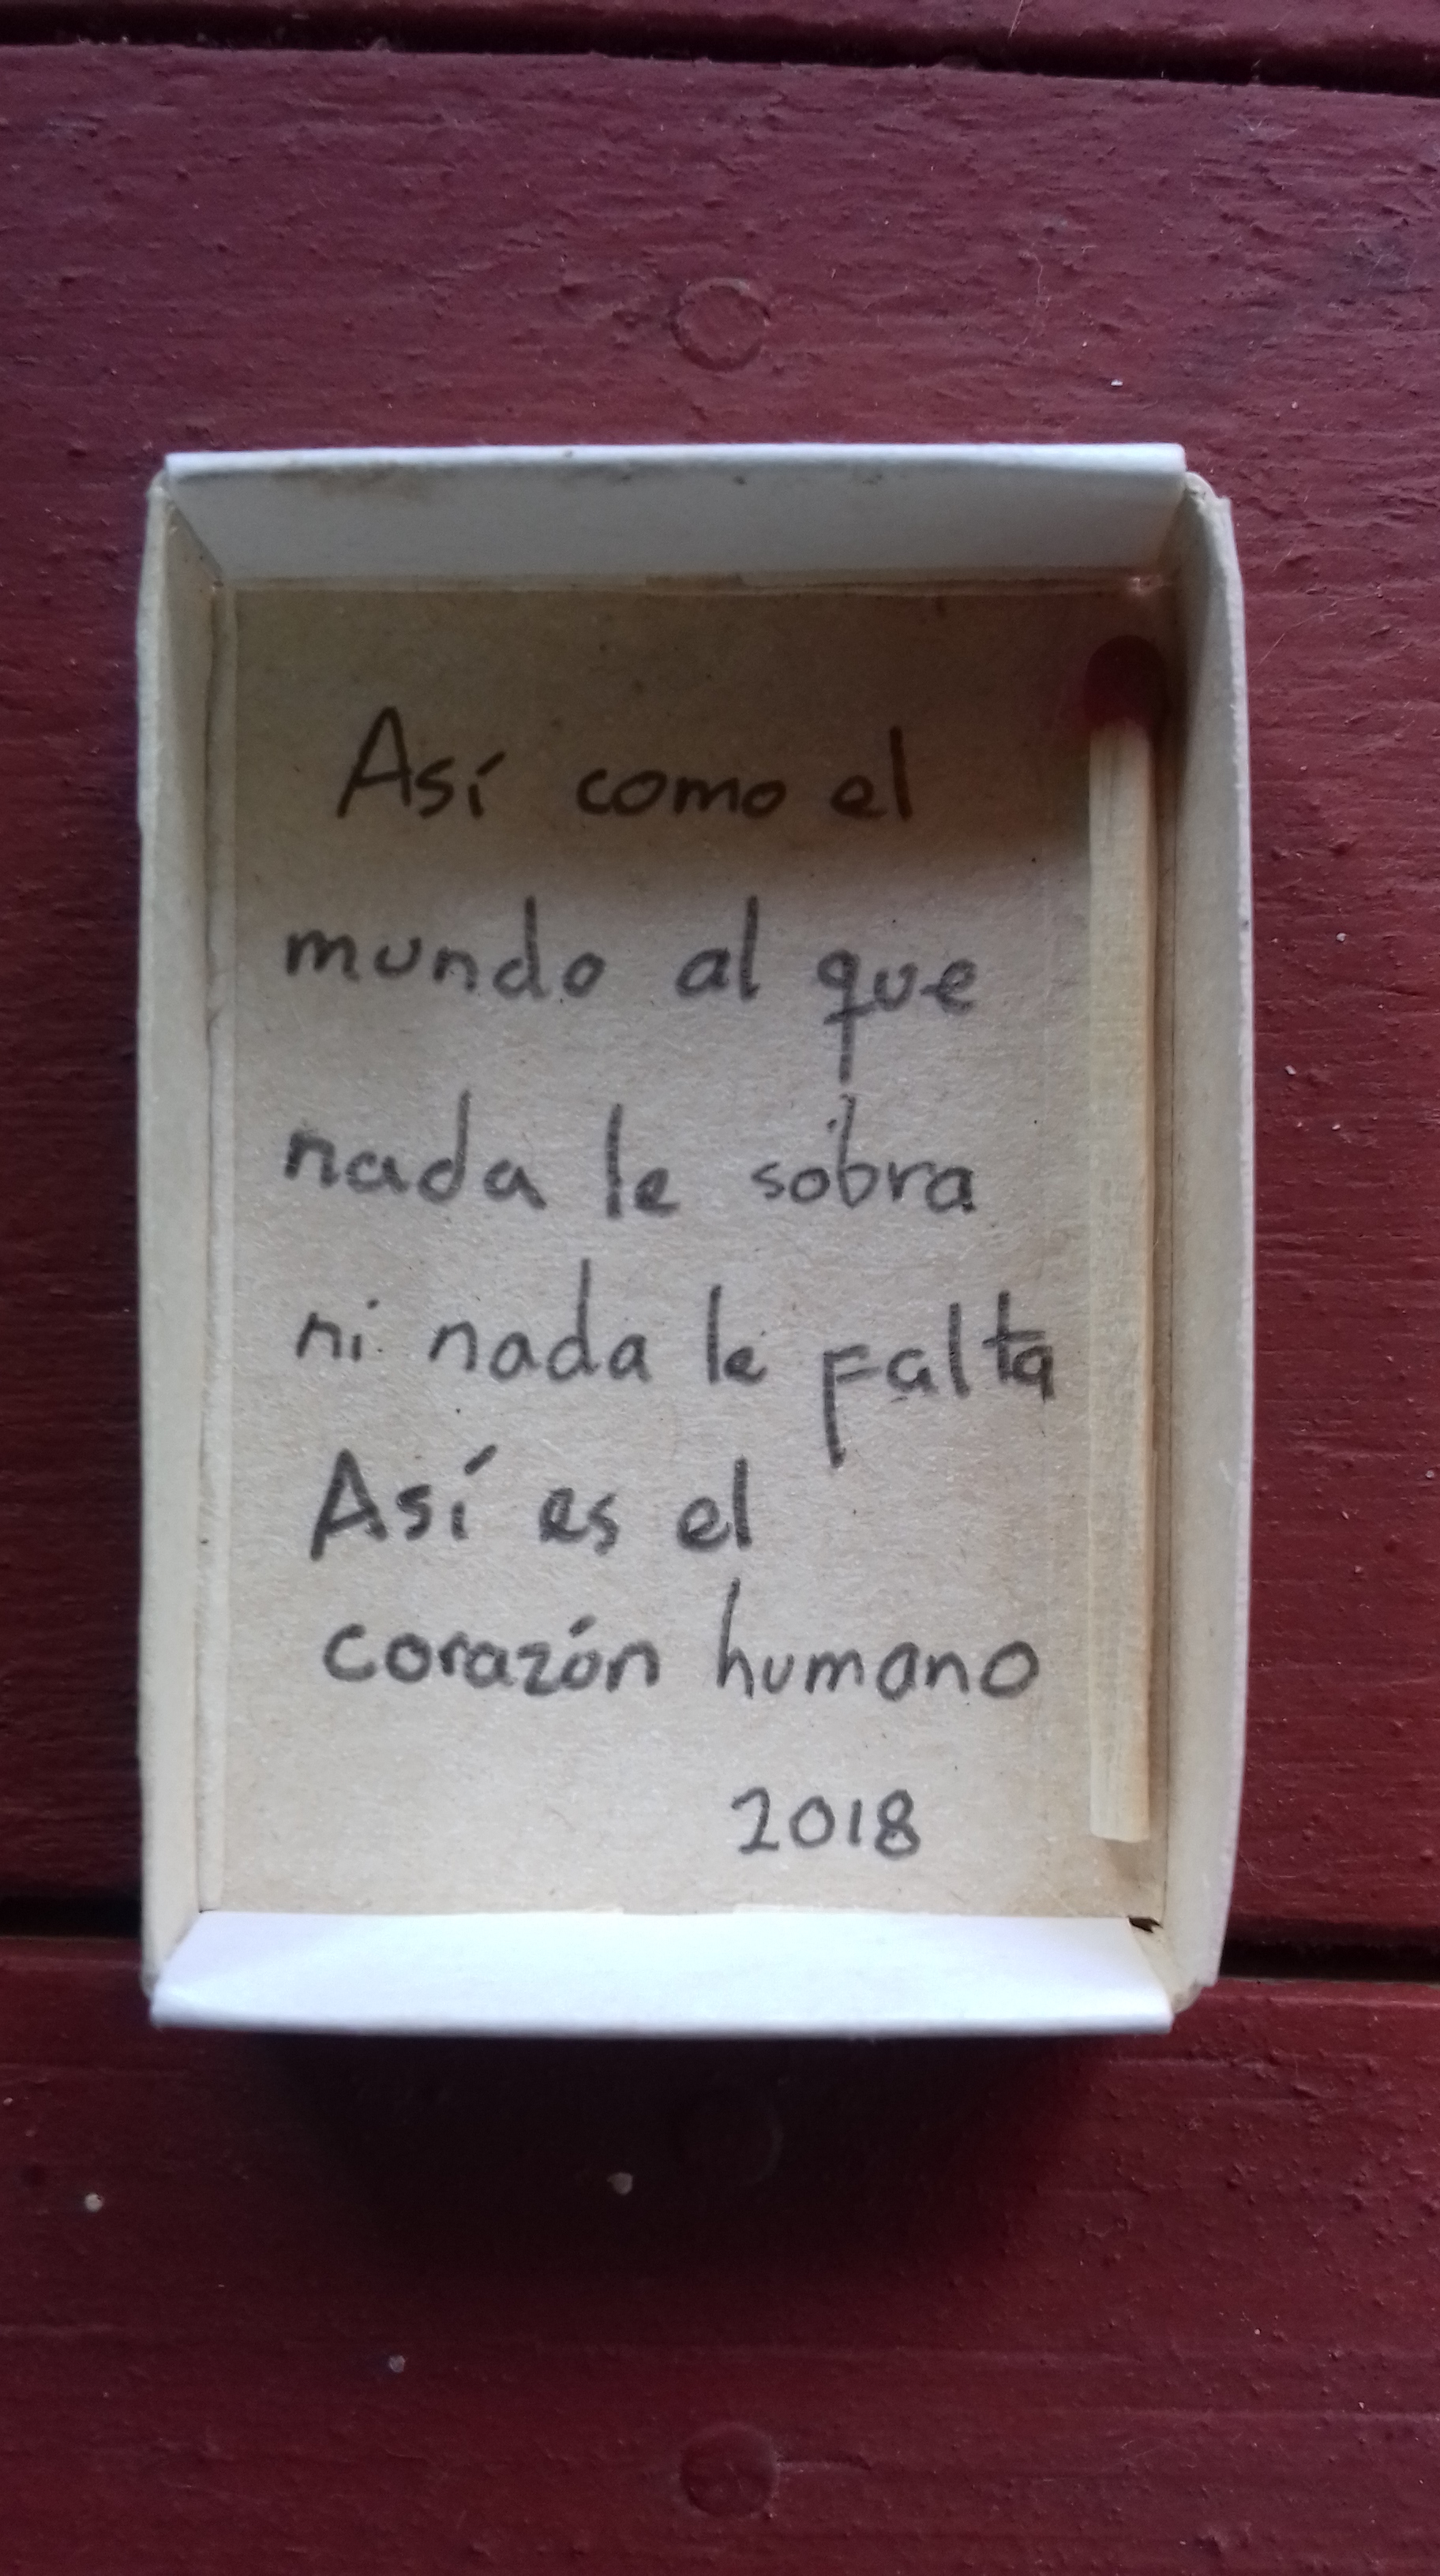 Así como el
mundo al que
nada le sobra
ni nada le falta
Así es el
corazón humano
2018